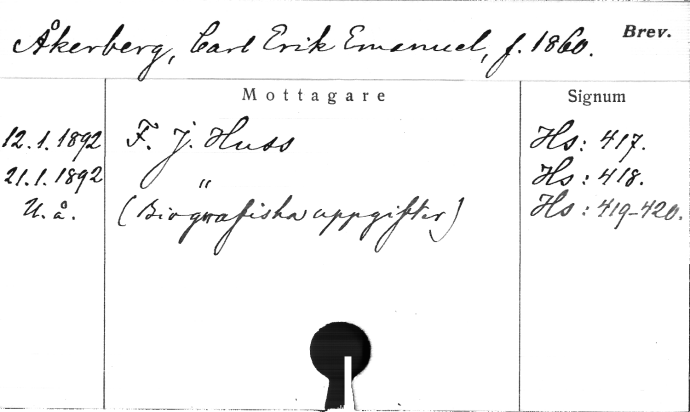 Åkerberg, Carl Erik Emanuel, f. 1860. Brev.
Mottagare Signum
12.1.1892 F. J. Huss Hs: 417.
21.1.1892 " Hs: 418.
U. å. (Biografiska uppgifter) Hs: 419-420.